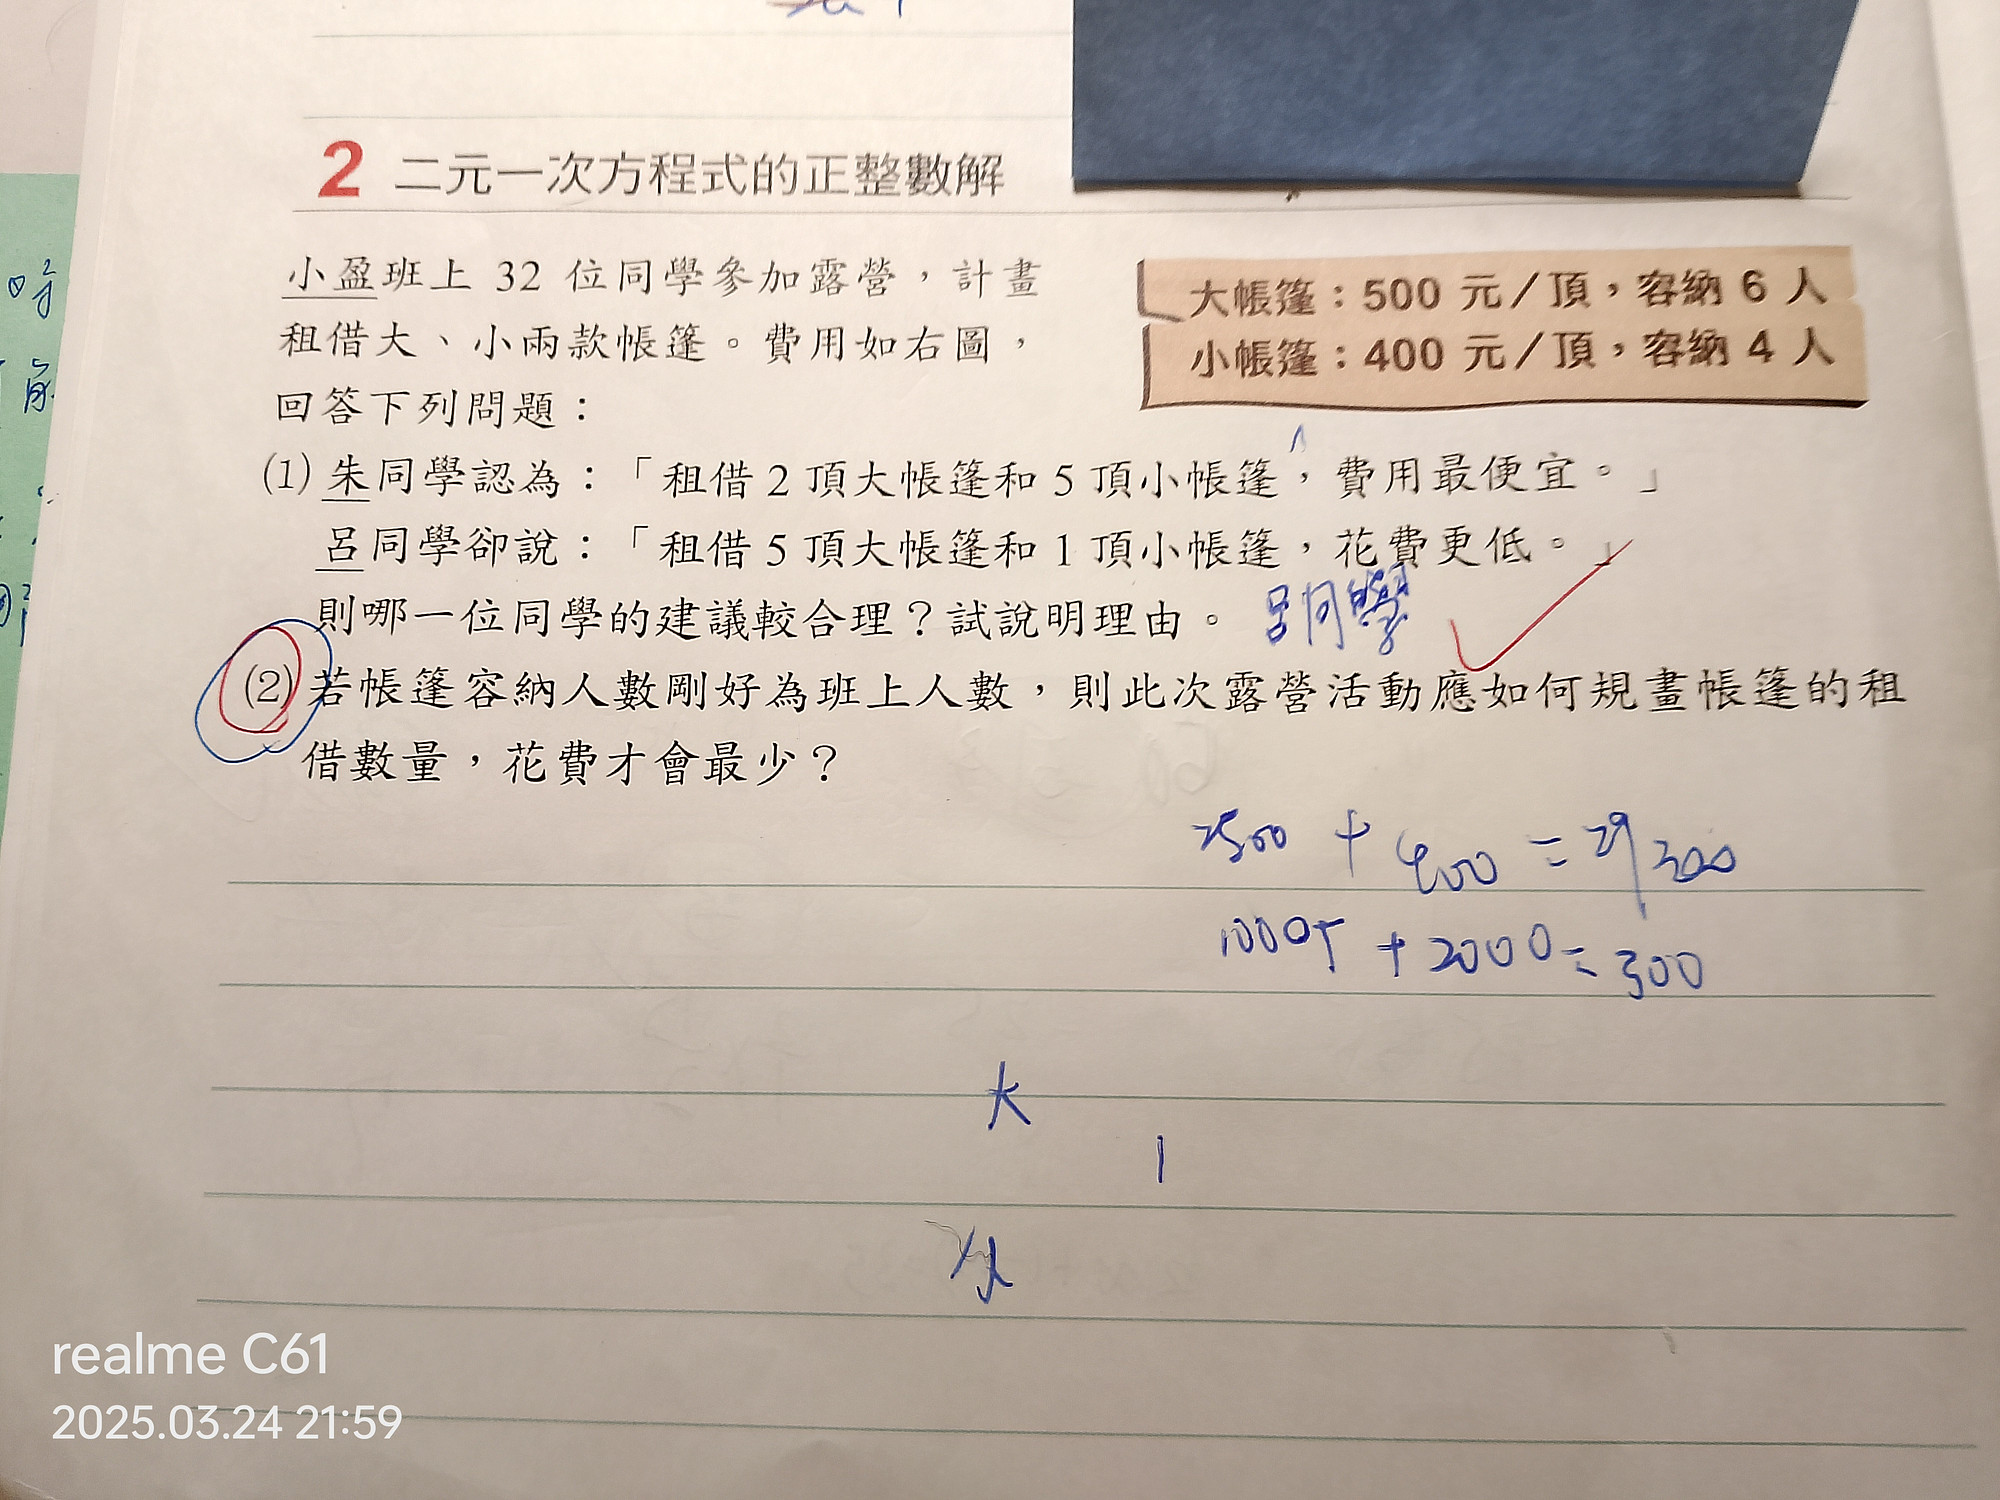 2 二元一次方程式的正整數解
小盈班上 32 位同學參加露營，計畫
租借大、小兩款帳篷。費用如右圖，
回答下列問題：
大帳篷：500 元／頂，容納 6 人
小帳篷：400 元／頂，容納 4 人
(1) 朱同學認為：「租借 2 頂大帳篷和 5 頂小帳篷，費用最便宜。」
呂同學卻說：「租借 5 頂大帳篷和 1 頂小帳篷，花費更低。」
則哪一位同學的建議較合理？試說明理由。 呂同學
(2) 若帳篷容納人數剛好為班上人數，則此次露營活動應如何規畫帳篷的租
借數量，花費才會最少？
2500 + 400 = 29
+ 2000 = 300
大
realme C61
2025.03.24 21:59